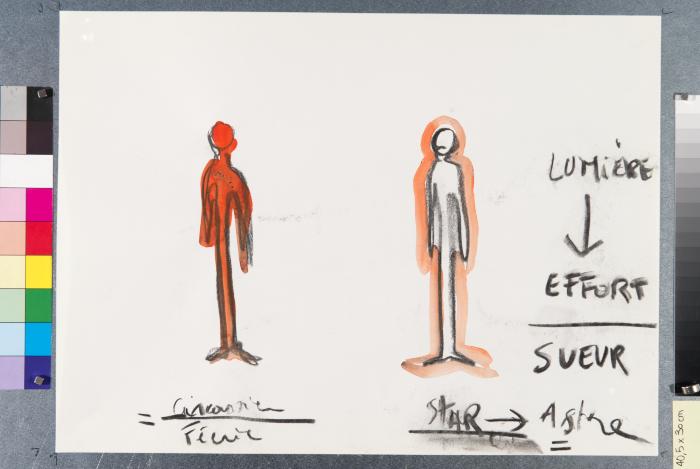 LUMIÈRE
↓
EFFORT
SUEUR
= Circassien
Féerie
STAR → Astre
=
40,5 x 30 cm